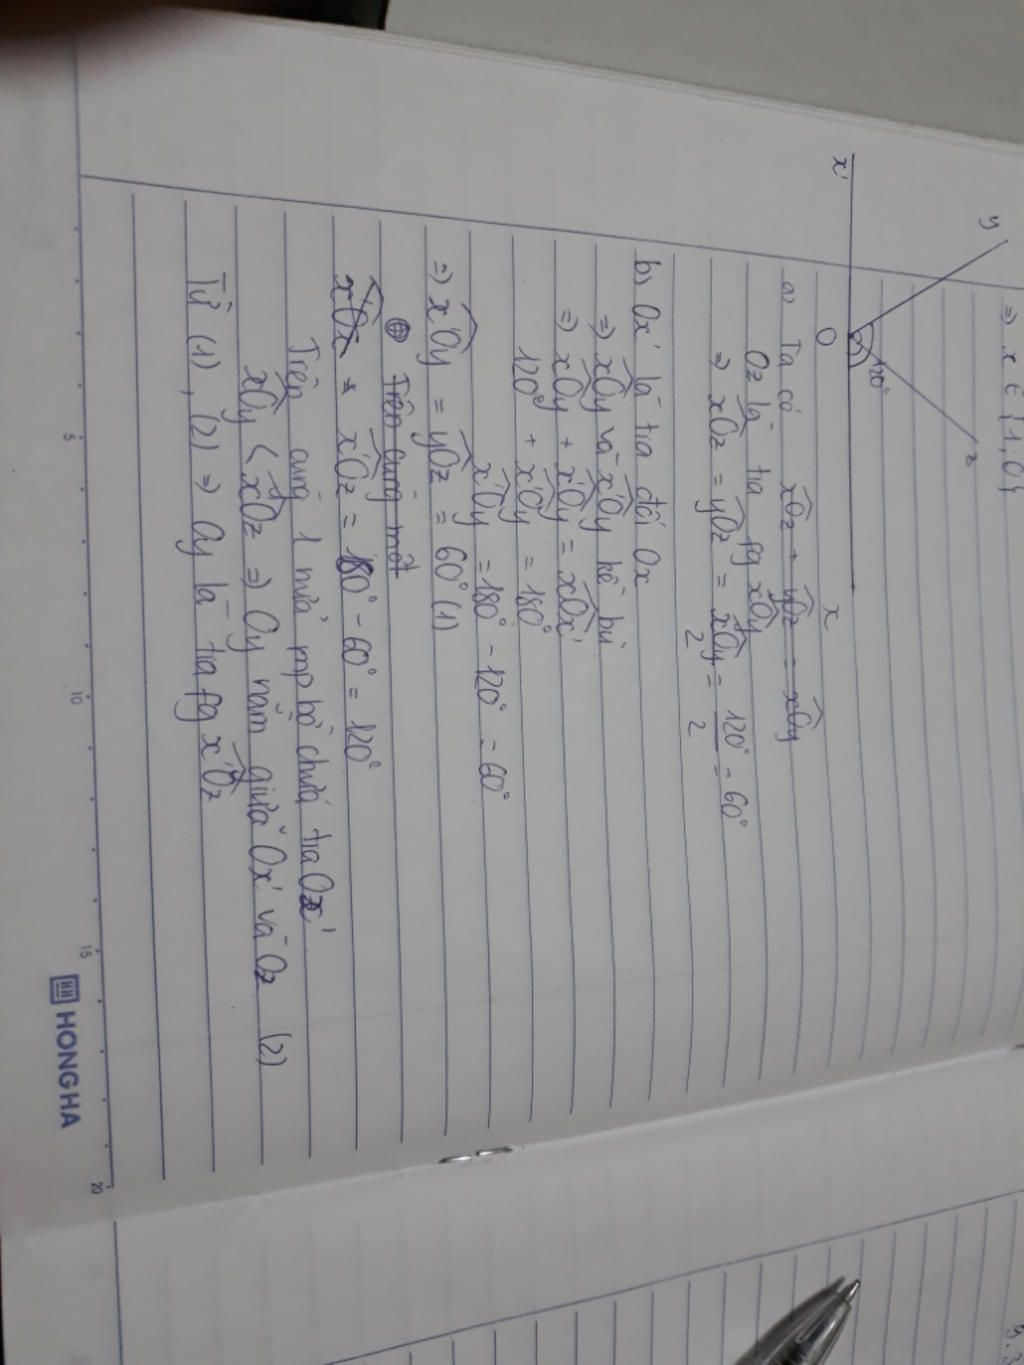 => x ∈ {1, 0}
y
z
120°
x'
O
x
a) Ta có x̂Oz + ŷOz = x̂Oy
Oz là tia pg x̂Oy
=> x̂Oz = ŷOz = x̂Oy/2 = 120°/2 = 60°
b) Ox' là tia đối Ox
=> x̂Oy và x̂'Oy kề bù
=> x̂Oy + x̂'Oy = x̂Ox'
120° + x̂'Oy = 180°
x̂'Oy = 180° - 120° = 60°
=> x̂'Oy = ŷOz = 60° (1)
Trên cùng một
x̂'Oz = 180° - 60° = 120°
Trên cùng 1 nửa mp bờ chứa tia Ox'
x̂'Oy < x̂'Oz => Oy nằm giữa Ox' và Oz (2)
Từ (1), (2) => Oy là tia pg x̂'Oz
5 10 15 20
HONGHA